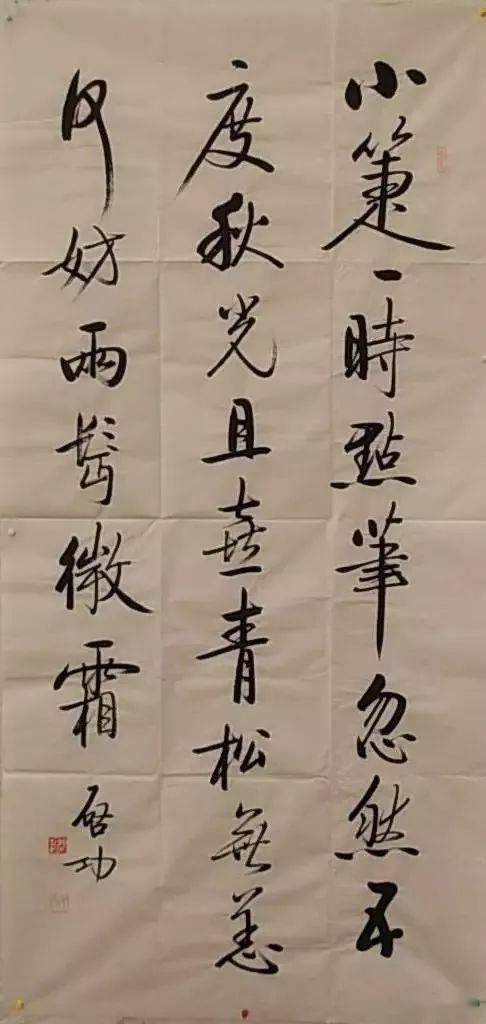 小箑一時點筆忽然五
度秋光且喜青松無恙
何妨兩鬢微霜 启功